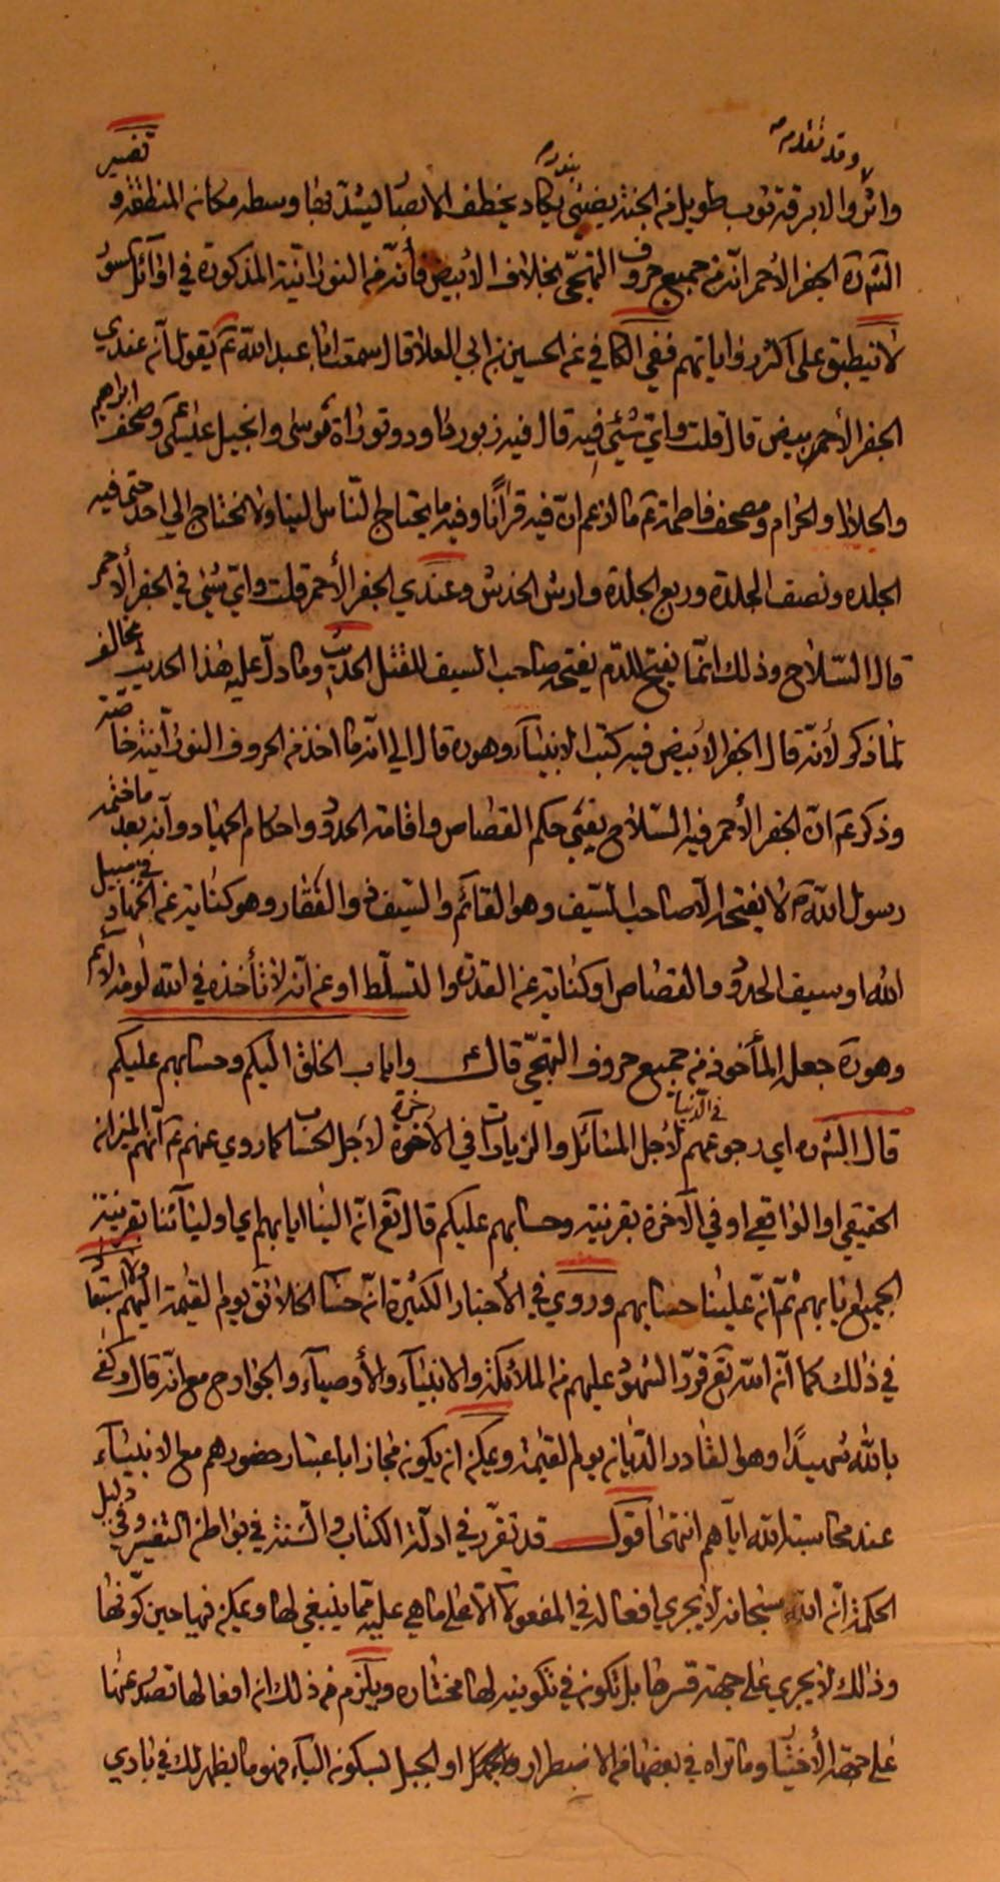 وقد تقدم
واثر والابرقة ثوب طويل من الجنة يضيئ يكاد يخطف الابصار ليشد بها وسطه مكان المنطقة و تفسير
الشره الجفر الأحمر انه من جميع حروف التهجي بخلاف الأبيض فأنه من النورانية المذكورة في اوائل السور
لا ينطبق على اكثر رواياتهم ففي الكافي عن الحسين بن ابي العلا قال سمعت ابا عبد الله ع يقول ان عندي
الجفر الأحمر بيض قال قلت واي شيئ فيه قال فيه زبور داود وتوراة موسى وانجيل عيسى وصحف ابراهيم
والحلال والحرام ومصحف فاطمة ع ما ازعم ان فيه قرآنا وفيه ما يحتاج الناس الينا ولا نحتاج الي احد حتى فيه
الجلده ونصف الجلدة وربع الجلدة وارش الخدش وعندي الجفر الأحمر قلت واي شيئ في الجفر الأحمر
قال السلاح وذلك انما يفتح للدم يفتحه صاحب السيف للقتل الحديث وما دل عليه هذا الحديث مخالف
لما ذكر لأنه قال الجفر الأبيض فيه كتب الانبياء وهو ره قال الي انه ما اخذ من الحروف النورانية خاصة
وذكر ع ان الجفر الأحمر فيه السلاح يعني حكم القصاص واقامة الحدود واحكام الجهاد وانه بعد ما ختمه
رسول الله ص لا يفتحه الا صاحب السيف وهو القائم والسيف ذو الفقار وهو كناية عن الجهاد في سبيل
الله او سيف الحدود والقصاص او كناية عن القدرة والتسلط او عن انه لا تأخذه في الله لومة لائم
وهو ره جعله المأخوذ من جميع حروف التهجي قال ع واياب الخلق اليكم وحسابهم عليكم
قال الشره اي رجوعهم في الدنيا لأجل المسائل والزيارات في الآخرة لأجل الحساب كما روي عنهم ع انهم الميزان
الحقيقي او الواقعي او في الآخرة بقرينة وحسابهم عليكم قال تع ان الينا ايابهم اي اوليائنا بقرينة
الجميع ايابهم ثم ان علينا حسابهم وروي في الأخبار الكثيرة ان حساب الخلائق يوم القيمة اليهم ولا استبعاد
في ذلك كما ان الله تع قرر الشهود عليهم من الملائكة والانبياء والأوصياء والجوارح مع انه قال وكفى
بالله شهيدا وهو القادر الديان يوم القيمة ويمكن ان يكون مجازا باعتبار حضورهم مع الانبياء
عند محاسبة الله اياهم انتهى اقول قد تقرر في ادلة الكتاب والسنة في بواطن التفسير وفي دليل
الحكمة ان الله سبحانه لا يجري افعاله في المفعولات الا على ما هي عليه مما ينبغي لها ويمكن فيها حين كونها
وذلك لا يجري على جهة قسرها بل تكون في تكوينه لها مختاره ويلزم من ذلك ان افعالها تصدر عنها
على جهة الأختيار وما تراه في بعضها من الاضطرار او الجبل بسكون الباء فهو ما يظهر لك في بادي